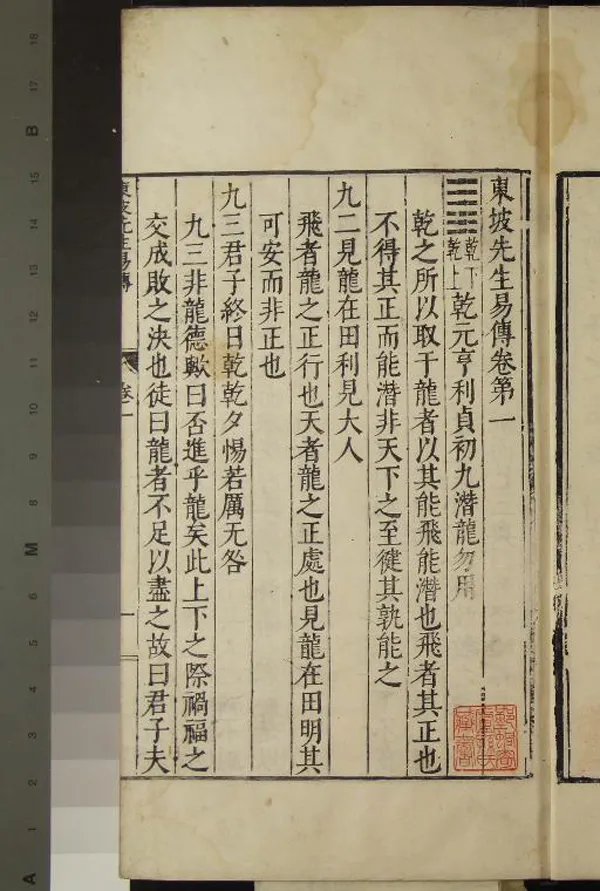 東坡先生易傳卷第一
乾下乾上乾元亨利貞初九潛龍勿用
乾之所以取于龍者以其能飛能潛也飛者其正也
不得其正而能潛非天下之至健其孰能之
九二見龍在田利見大人
飛者龍之正行也天者龍之正處也見龍在田明其
可安而非正也
九三君子終日乾乾夕惕若厲无咎
九三非龍德歟曰否進乎龍矣此上下之際禍福之
交成敗之決也徒曰龍者不足以盡之故曰君子夫
東坡先生易傳
卷一
一
B
M
A
18
17
16
15
14
13
12
11
10
9
8
7
6
5
4
3
2
1